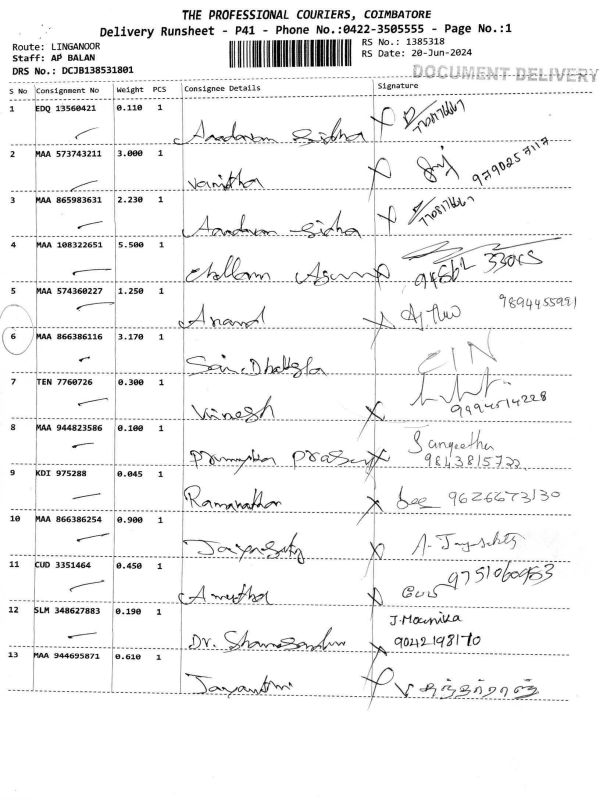 THE PROFESSIONAL COURIERS, COIMBATORE
Delivery Runsheet - P41 - Phone No.:0422-3505555 - Page No.:1
Route: LINGANOOR
Staff: AP BALAN
DRS No.: DCJB138531801
RS No.: 1385318
RS Date: 20-Jun-2024
DOCUMENT DELIVERY
S No Consignment No Weight PCS Consignee Details Signature
1 EDQ 13560421 0.110 1
2 MAA 573743211 3.000 1
Vanitha 9790257117
3 MAA 865983631 2.230 1
4 MAA 108322651 5.500 1
5 MAA 574360227 1.250 1
Anand 9894455991
6 MAA 866386116 3.170 1
7 TEN 7760726 0.300 1
Vinesh 9994514228
8 MAA 944823586 0.100 1
Sangeetha
9843815722
9 KDI 975288 0.045 1
Ramanathan 9626673130
10 MAA 866386254 0.900 1
11 CUD 3351464 0.450 1
Amutha 9751060953
12 SLM 348627883 0.190 1
J. Mounika
Dr. 9042198170
13 MAA 944695871 0.610 1
Jayanthi